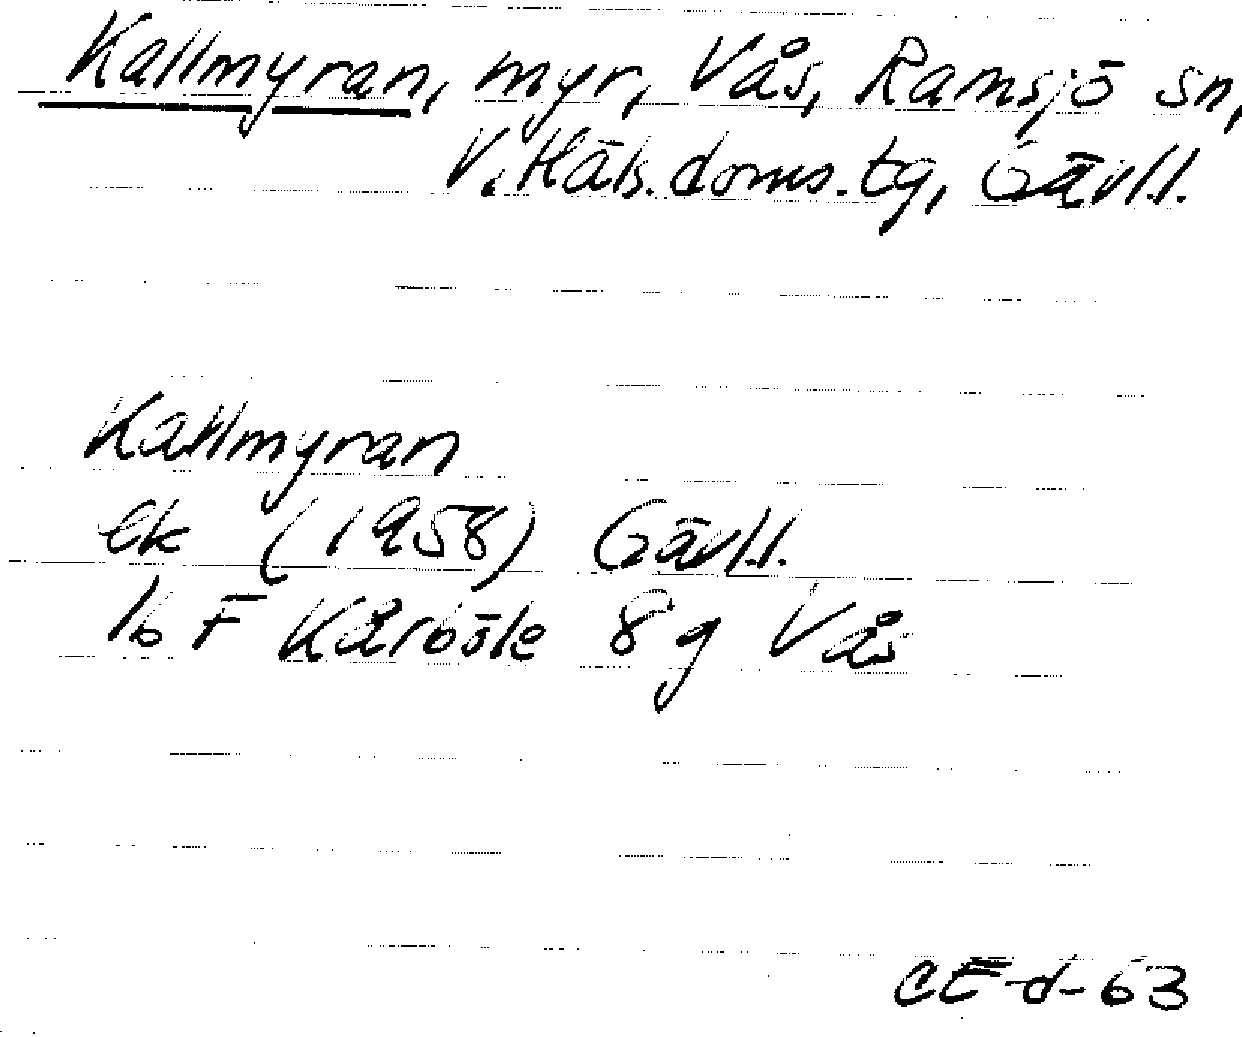 Kallmyran, myr, Vås, Ramsjö sn,
V. Häls. doms. tg, Gävl.l.
Kallmyran
ek (1958) Gävl.l.
16 F Kårböle 8 g Vås
CE-d-63